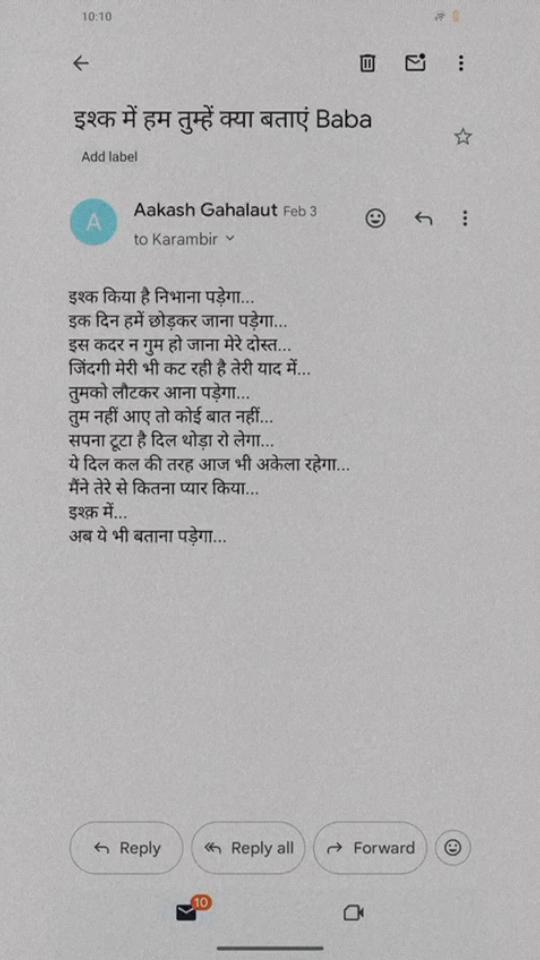 10:10
इश्क में हम तुम्हें क्या बताएं Baba
Add label
A
Aakash Gahalaut Feb 3
to Karambir
इश्क किया है निभाना पड़ेगा...
इक दिन हमें छोड़कर जाना पड़ेगा...
इस कदर न गुम हो जाना मेरे दोस्त...
जिंदगी मेरी भी कट रही है तेरी याद में...
तुमको लौटकर आना पड़ेगा...
तुम नहीं आए तो कोई बात नहीं...
सपना टूटा है दिल थोड़ा रो लेगा...
ये दिल कल की तरह आज भी अकेला रहेगा...
मैंने तेरे से कितना प्यार किया...
इश्क़ में...
अब ये भी बताना पड़ेगा...
Reply Reply all Forward
10